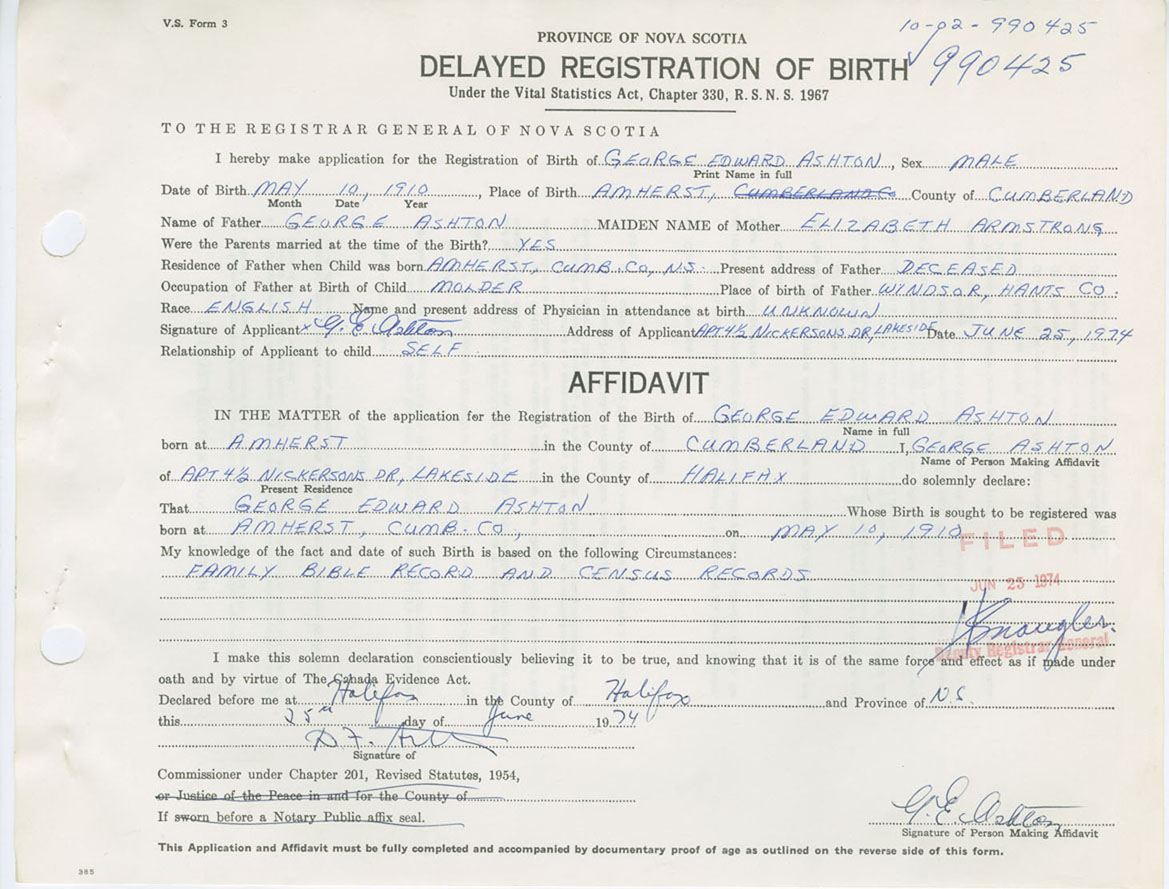 V.S. Form 3
10-02-990425
PROVINCE OF NOVA SCOTIA
DELAYED REGISTRATION OF BIRTH 990425
Under the Vital Statistics Act, Chapter 330, R. S. N. S. 1967
TO THE REGISTRAR GENERAL OF NOVA SCOTIA
I hereby make application for the Registration of Birth of GEORGE EDWARD ASHTON, Sex MALE
Print Name in full
Date of Birth MAY 10, 1910, Place of Birth AMHERST, CUMBERLAND Co. County of CUMBERLAND
Month Date Year
Name of Father GEORGE ASHTON MAIDEN NAME of Mother ELIZABETH ARMSTRONG
Were the Parents married at the time of the Birth? YES
Residence of Father when Child was born AMHERST, CUMB. CO, N.S. Present address of Father DECEASED
Occupation of Father at Birth of Child MOLDER Place of birth of Father WINDSOR, HANTS CO.
Race ENGLISH Name and present address of Physician in attendance at birth UNKNOWN
Signature of Applicant x G. E. Ashton Address of Applicant APT 4½ NICKERSONS DR, LAKESIDE Date JUNE 25, 1974
Relationship of Applicant to child SELF
AFFIDAVIT
IN THE MATTER of the application for the Registration of the Birth of GEORGE EDWARD ASHTON
Name in full
born at AMHERST in the County of CUMBERLAND I, GEORGE ASHTON
Name of Person Making Affidavit
of APT 4½ NICKERSONS DR, LAKESIDE in the County of HALIFAX do solemnly declare:
Present Residence
That GEORGE EDWARD ASHTON Whose Birth is sought to be registered was
born at AMHERST, CUMB. CO, on MAY 10, 1910
FILED
My knowledge of the fact and date of such Birth is based on the following Circumstances:
FAMILY BIBLE RECORD AND CENSUS RECORDS
JUN 25 1974
Deputy Registrar General
I make this solemn declaration conscientiously believing it to be true, and knowing that it is of the same force and effect as if made under
oath and by virtue of The Canada Evidence Act.
Declared before me at Halifax in the County of Halifax and Province of N.S.
this 25th day of June 1974
Signature of
Commissioner under Chapter 201, Revised Statutes, 1954,
or Justice of the Peace in and for the County of
If sworn before a Notary Public affix seal.
G. E. Ashton
Signature of Person Making Affidavit
This Application and Affidavit must be fully completed and accompanied by documentary proof of age as outlined on the reverse side of this form.
385